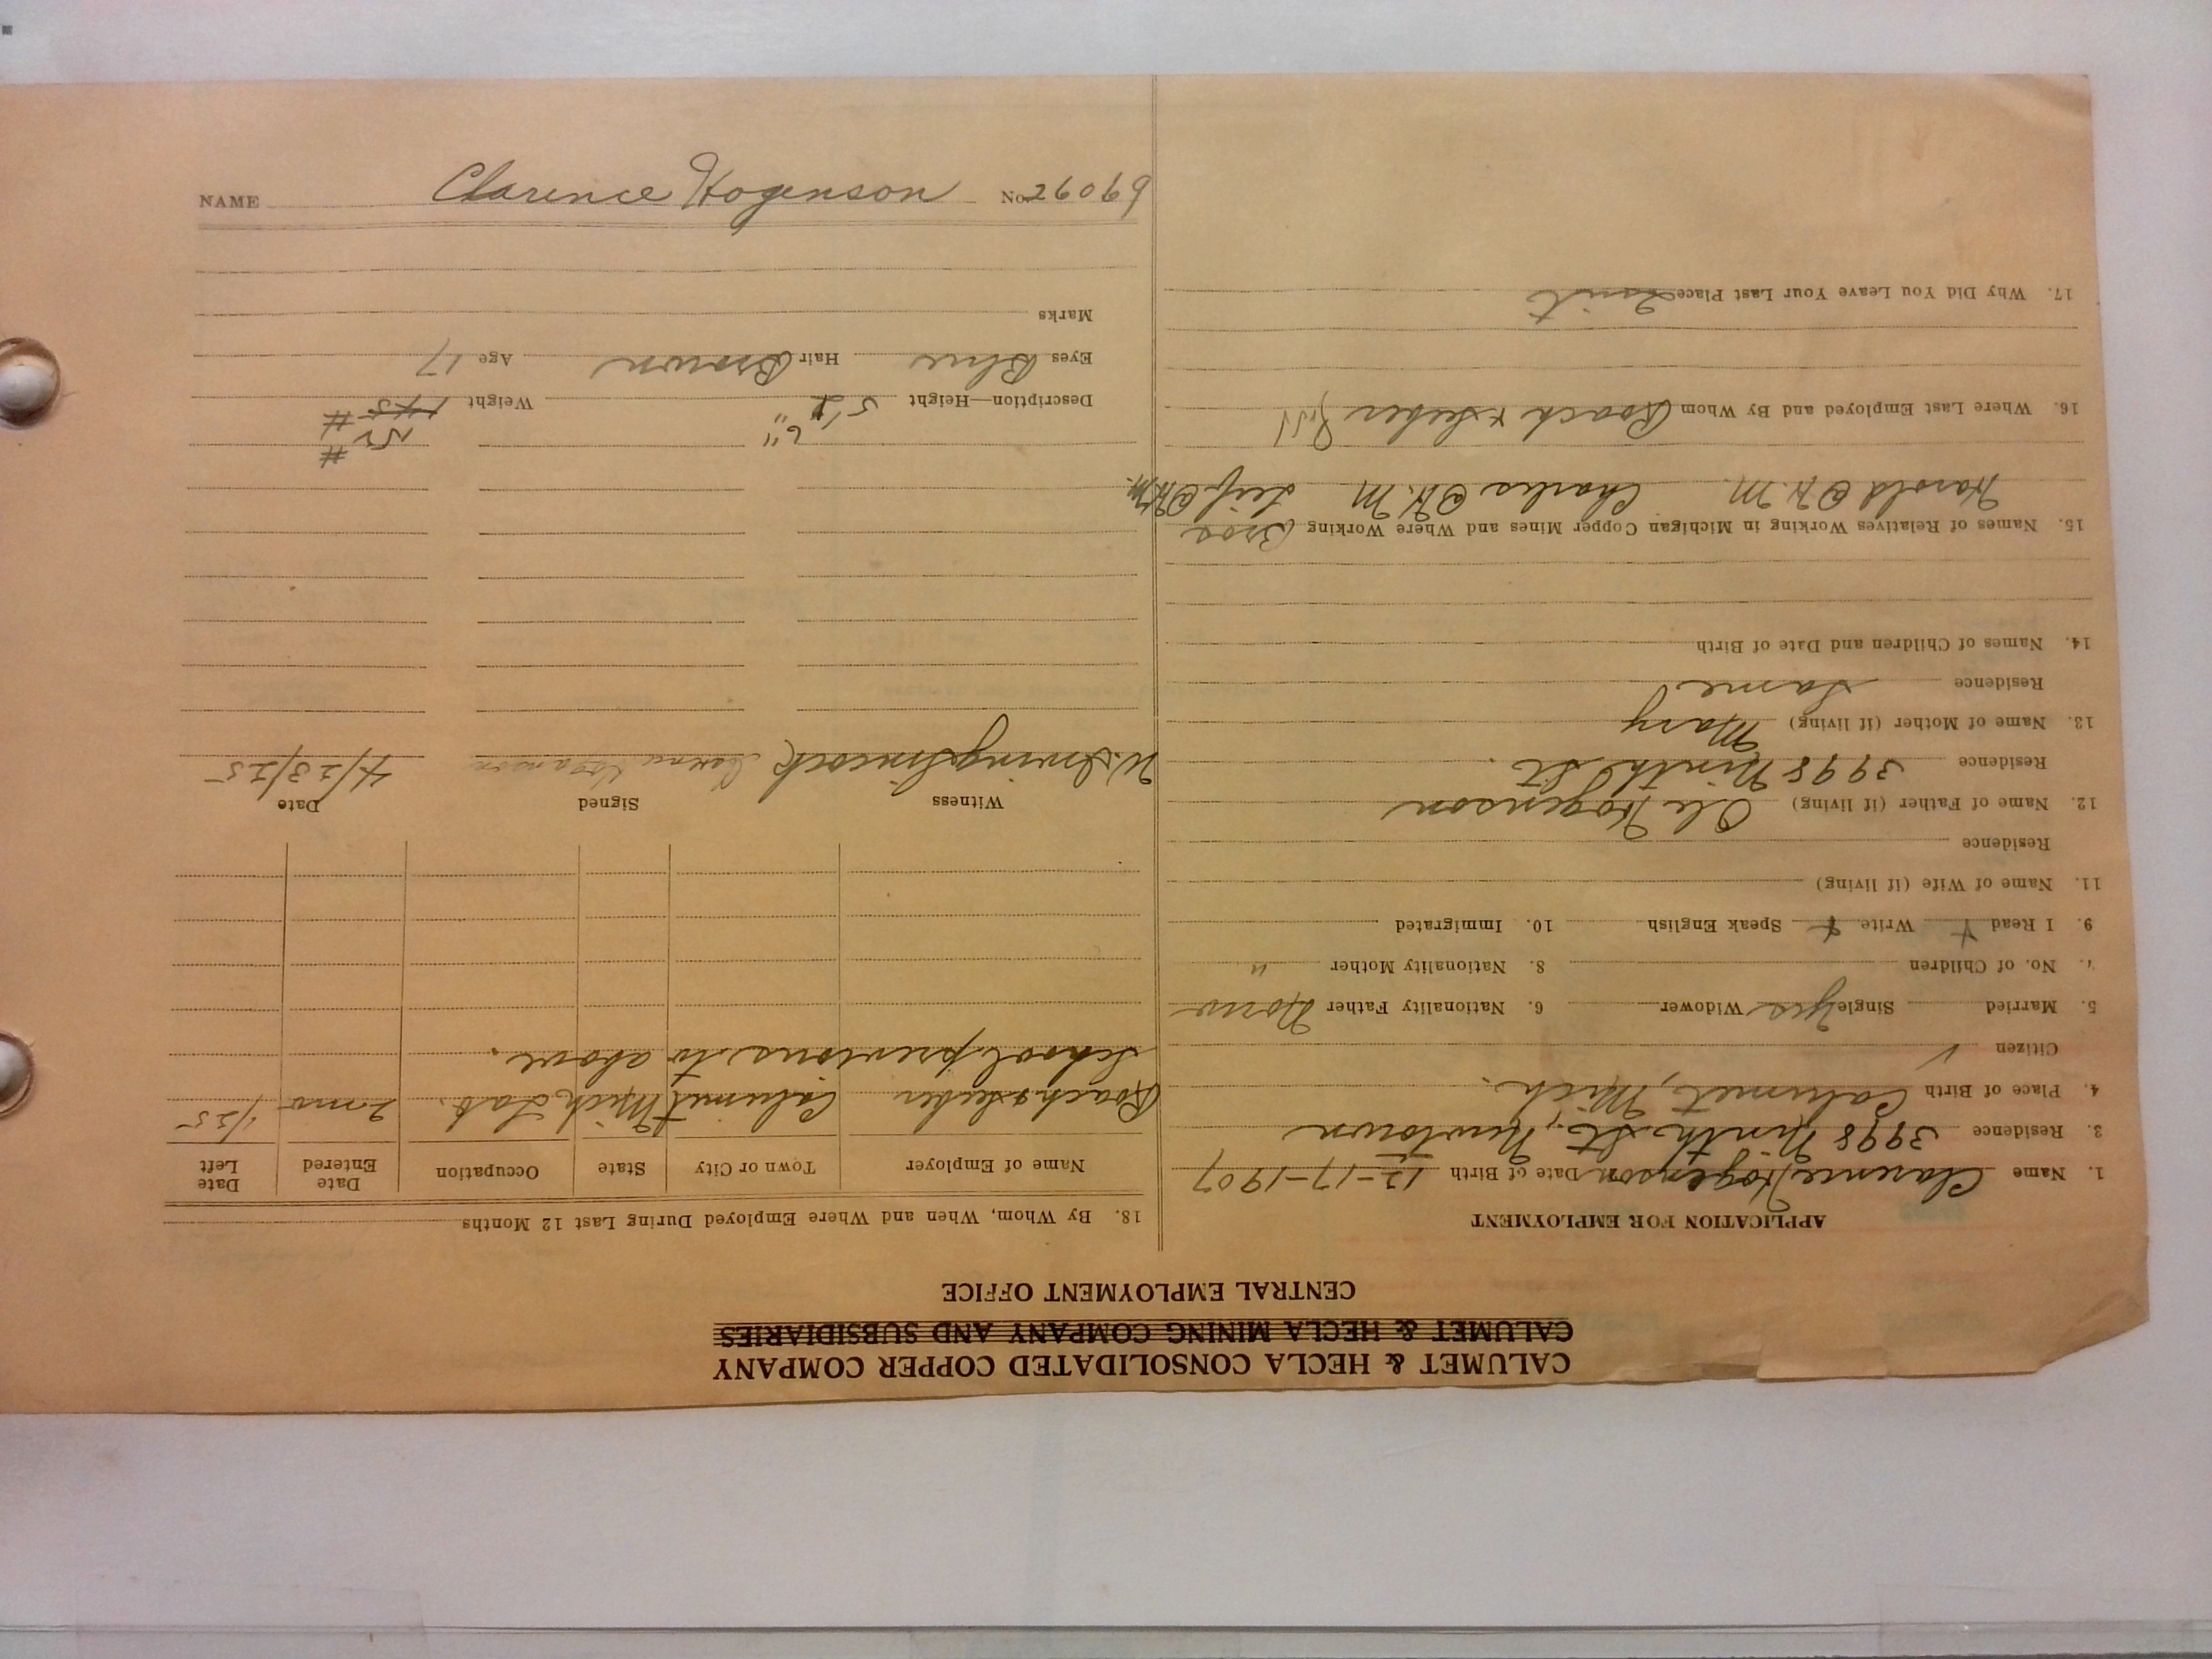 CALUMET & HECLA CONSOLIDATED COPPER COMPANY
CALUMET & HECLA MINING COMPANY AND SUBSIDIARIES
CENTRAL EMPLOYMENT OFFICE
APPLICATION FOR EMPLOYMENT
1. Name Clarence Hogenson Date of Birth 12-17-1907
3. Residence 3998 Ninth St., Newtown
4. Place of Birth Calumet, Mich.
Citizen ✓
5. Married Single yes Widower 6. Nationality Father Norw
7. No. of Children 8. Nationality Mother "
9. I Read Y Write Y Speak English 10. Immigrated
11. Name of Wife (if living)
Residence
12. Name of Father (if living) Ole Hogenson
Residence 3998 Ninth St.
13. Name of Mother (if living) Mary
Residence Same
14. Names of Children and Date of Birth
15. Names of Relatives Working in Michigan Copper Mines and Where Working Bros
Harold @ H.M. Charles @ H.M Leif @ H.M.
16. Where Last Employed and By Whom Roach & Seeber
17. Why Did You Leave Your Last Place Quit
18. By Whom, When and Where Employed During Last 12 Months
Name of Employer Town or City State Occupation Date Entered Date Left
Roach & Seeber Calumet Mich Lab. 2 mo 1/25
School previous to above.
Witness Signed Date
W. Irving Hogenson 4/23/25
6" 152 #
Description—Height 5' Weight 145 #
Eyes Blue Hair Brown Age 17
Marks
NAME Clarence Hogenson No. 26069